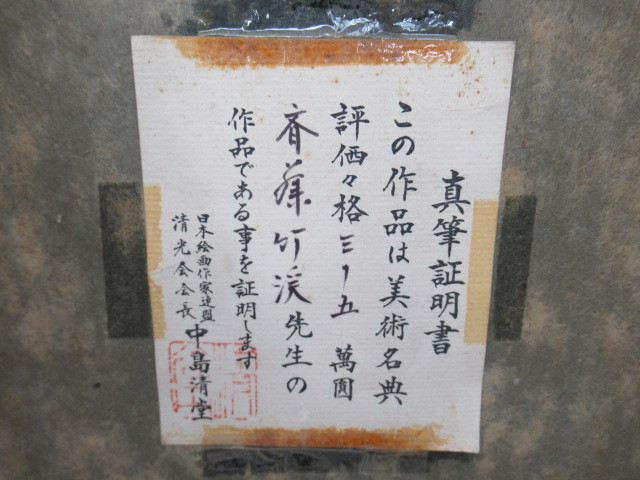 真筆証明書
この作品は美術名典
評価々格三ー五萬圓
斉藤竹渓先生の
作品である事を証明します
日本絵画作家連盟
清光会会長 中島清堂